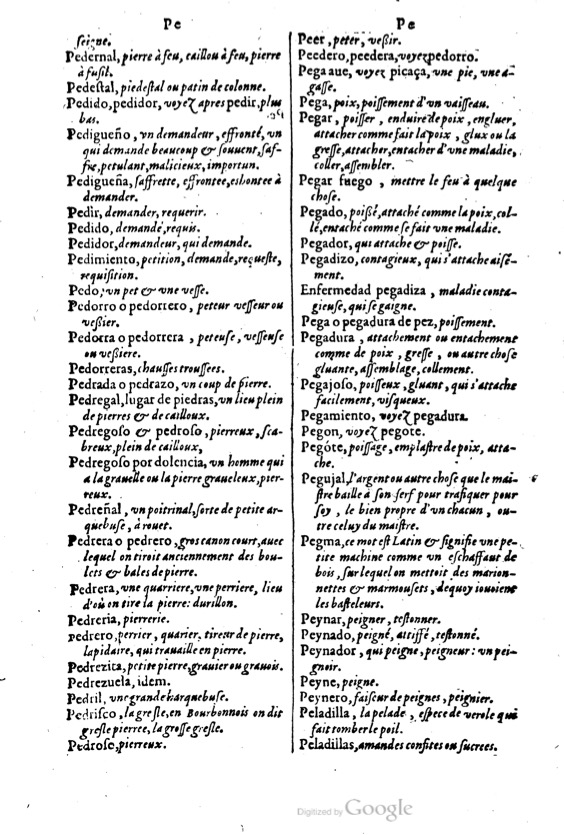 Pe
ſeigne.
Pedernal, pierre à feu, caillou à feu, pierre
à fuſil.
Pedeſtal, piedeſtal ou patin de colonne.
Pedido, pedidor, voyez apres pedir, plus
bas.
Pedigueño, vn demandeur, effronté, vn
qui demande beaucoup & ſouuent, ſaf-
fre, petulant, malicieux, importun.
Pedigueña, ſaffrette, effrontee, eshontee à
demander.
Pedir, demander, requerir.
Pedido, demandé, requis.
Pedidor, demandeur, qui demande.
Pedimiento, petition, demande, requeſte,
requiſition.
Pedo, vn pet & vne veſſe.
Pedorro o pedorrero, peteur veſſeur ou
veßier.
Pedorra o pedorrera, peteuſe, veſſeuſe
ou veßiere.
Pedorreras, chauſſes trouſſees.
Pedrada o pedrazo, vn coup de pierre.
Pedregal, lugar de piedras, vn lieu plein
de pierres & de cailloux.
Pedregoſo & pedroſo, pierreux, ſca-
breux, plein de cailloux,
Pedregoſo por dolencia, vn homme qui
a la grauelle ou la pierre graueleux, pier-
reux.
Pedreñal, vn poitrinal, ſorte de petite ar-
quebuſe, à rouet.
Pedrera o pedrero, gros canon court, auec
lequel on tiroit anciennement des bou-
lets & bales de pierre.
Pedrera, vne quarriere, vne perriere, lieu
d'où on tire la pierre: durillon.
Pedreria, pierrerie.
pedrero, perrier, quarier, tireur de pierre,
lapidaire, qui trauaille en pierre.
Pedrezita, petite pierre, grauier ou grauois.
Pedrezuela, idem.
Pedril, vne grande harquebuſe.
Pedriſco, la greſle, en Bourbonnois on dit
greſle pierree, la groſſe greſle.
Pedroſo, pierreux.
Pe
Peer, peter, veßir.
Peedero, peedera, voyez pedorro.
Pega aue, voyez picaça, vne pie, vne a-
gaſſe.
Pega, poix, poiſſement d'vn vaiſſeau.
Pegar, poiſſer, enduire de poix, engluer,
attacher comme fait la poix, glux ou la
greſſe, attacher, entacher d'vne maladie,
coller, aſſembler.
Pegar fuego, mettre le feu à quelque
choſe.
Pegado, poißé, attaché comme la poix, col-
lé, entaché comme ſe fait vne maladie.
Pegador, qui attache & poiſſe.
Pegadizo, contagieux, qui s'attache aiſé-
ment.
Enfermedad pegadiza, maladie conta-
gieuſe, qui ſe gaigne.
Pega o pegadura de pez, poiſſement.
Pegadura, attachement ou entachement
comme de poix, greſſe, ou autre choſe
gluante, aſſemblage, collement.
Pegajoſo, poiſſeux, gluant, qui s'attache
facilement, viſqueux.
Pegamiento, voyez pegadura.
Pegon, voyez pegote.
Pegóte, poiſſage, emplaſtre de poix, atta-
che.
Pegujal, l'argent ou autre choſe que le mai-
ſtre baille à ſon ſerf pour trafiquer pour
ſoy, le bien propre d'vn chacun, ou-
tre celuy du maiſtre.
Pegma, ce mot eſt Latin & ſignifie vne pe-
tite machine comme vn eſchaffaut de
bois, ſur lequel on mettoit des marion-
nettes & marmouſets, dequoy iouoient
les baſteleurs.
Peynar, peigner, teſtonner.
Peynado, peigné, attiffé, teſtonné.
Peynador, qui peigne, peigneur: vn pei-
gnoir.
Peyne, peigne.
Peynero, faiſeur de peignes, peignier.
Peladilla, la pelade, eſpece de verole qui
fait tomber le poil.
Peladillas, amandes confites ou ſucrees.
Digitized by Google